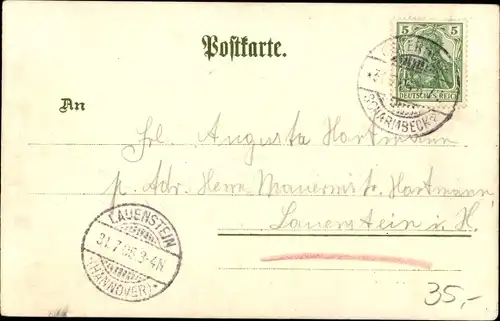 Postkarte.
5 5
DEUTSCHES REICH
SCHARMBECK
An
Frl. Augusta Hartmann
p. Adr. Herrn Maurermstr. Hartmann
Lauenstein i. H.
LAUENSTEIN
31.7.05 3-4N
(HANNOVER)
35,-